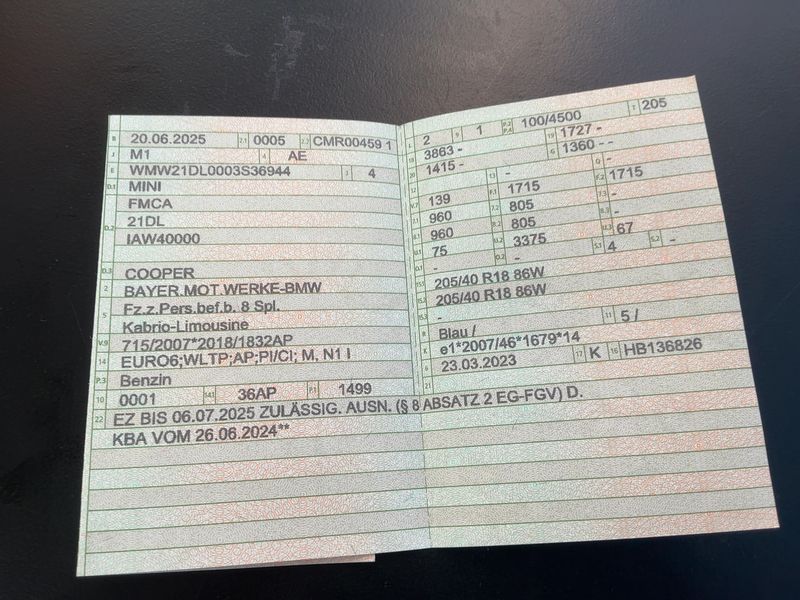 B 20.06.2025 2.1 0005 2.2 CMR00459 1
J M1 4 AE
E WMW21DL0003S36944 3 4
D.1 MINI
FMCA
D.2 21DL
IAW40000
D.3 COOPER
2 BAYER.MOT.WERKE-BMW
5 Fz.z.Pers.bef.b. 8 Spl.
Kabrio-Limousine
V.9 715/2007*2018/1832AP
14 EURO6;WLTP;AP;PI/CI; M, N1 I
P.3 Benzin
10 0001 14.1 36AP P.1 1499
22 EZ BIS 06.07.2025 ZULÄSSIG. AUSN. (§ 8 ABSATZ 2 EG-FGV) D.
KBA VOM 26.06.2024**
L 2 9 1 P.2 P.4 100/4500 T 205
18 3863 - 19 1727 -
20 1415 - G 1360 - -
12 - 13 - Q -
V.7 139 F.1 1715 F.2 1715
7.1 960 7.2 805 7.3 -
8.1 960 8.2 805 8.3 -
U.1 75 U.2 3375 U.3 67
O.1 - O.2 - S.1 4 S.2 -
15.1 205/40 R18 86W
15.2 205/40 R18 86W
15.3 -
R Blau / 11 5 /
K e1*2007/46*1679*14
6 23.03.2023 17 K 16 HB136826
21